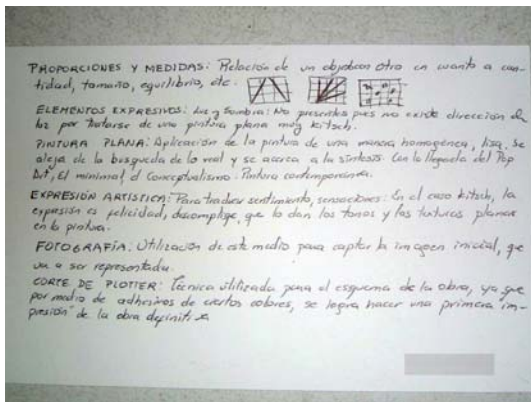 PROPORCIONES Y MEDIDAS: Relación de un objeto con otro en cuanto a can-
tidad, tamaño, equilibrio, etc.
ELEMENTOS EXPRESIVOS: Luz y Sombra: No presentes pues no existe dirección de
luz por tratarse de una pintura plana muy kitsch.
PINTURA PLANA: Aplicación de la pintura de una manera homogénea, lisa, se
aleja de la busqueda de lo real y se acerca a la síntesis. Con la llegada del Pop
Art, El minimal, el Conceptualismo: Pintura contemporanea.
EXPRESIÓN ARTISTICA: Para traducir sentimiento, sensaciones: En el caso kitsch, la
expresión es felicidad, que lo dan los tonos y las texturas planas
en la pintura.
FOTOGRAFÍA: Utilización de este medio para captar la imagen inicial, que
va a ser representada.
CORTE DE PLOTTER: Técnica utilizada para el esquema de la obra, ya que
por medio de adhesivos de ciertos colores, se logra hacer una primera im-
presión de la obra definitiva